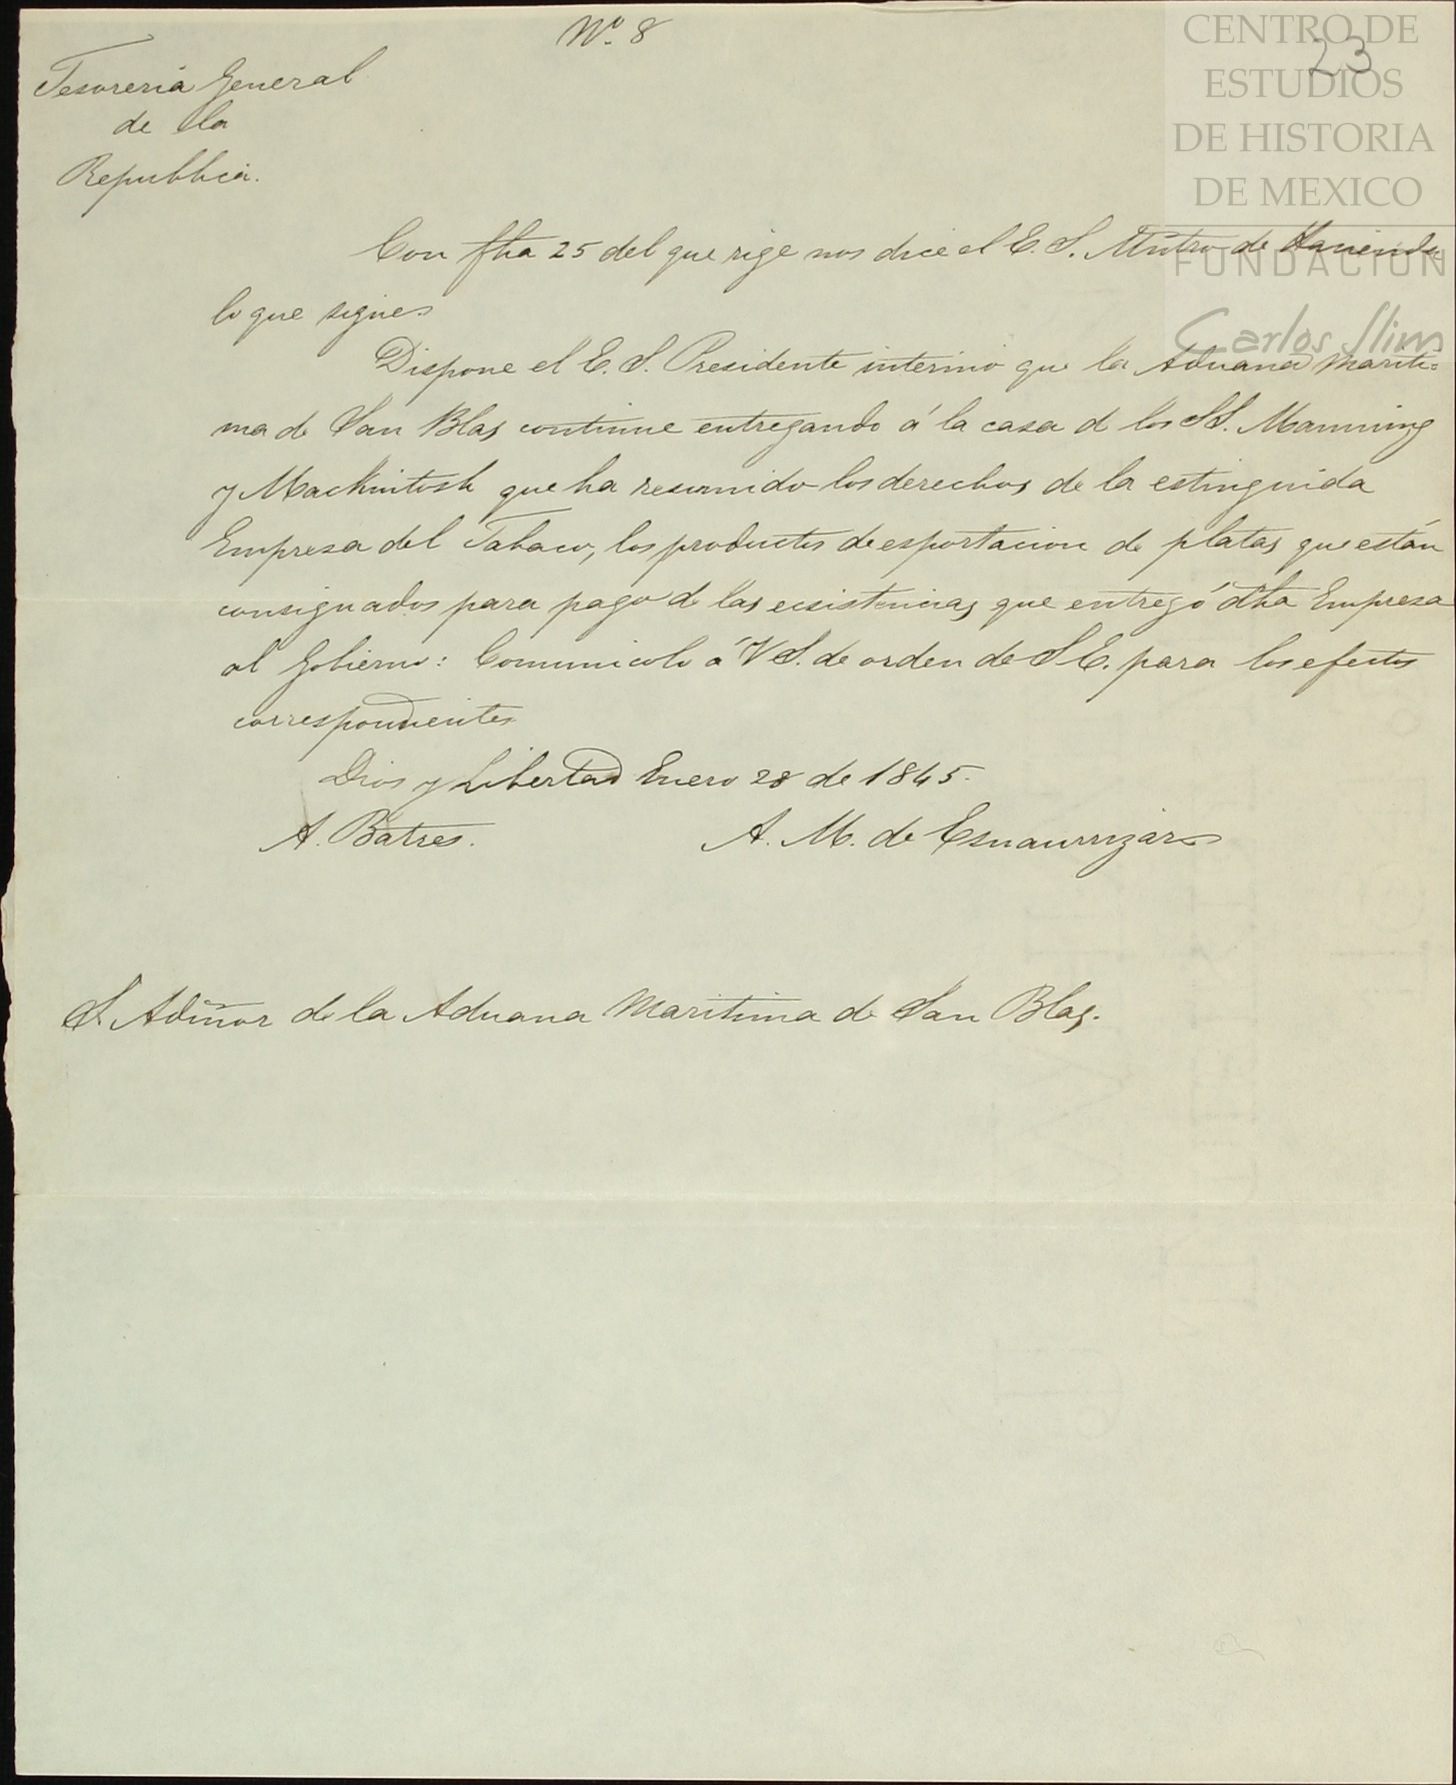 Nº. 8
23
CENTRO DE
ESTUDIOS
DE HISTORIA
DE MEXICO
FUNDACION
Carlos Slim
Tesoreria General
de la
Republica.
Con fha 25 del que rige nos dice el E. S. Mntro de Hacienda
lo que sigue.
Dispone el E. S. Presidente interino que la Aduana Mariti=
ma de San Blas continue entregando á la casa d los SS. Manning
y Mackintosh que ha resumido los derechos de la estinguida
Empresa del Tabaco, los productos de esportacion de platas que están
consignados para pago d las ecsistencias que entregó dha Empresa
al Gobierno: Comunicolo á V S. de orden de S E. para los efectos
correspondientes
Dios y Libertad Enero 28 de 1845.
A. Batres. A. M. de Esnaurrizar
S. Admor de la Aduana Maritima de San Blas.